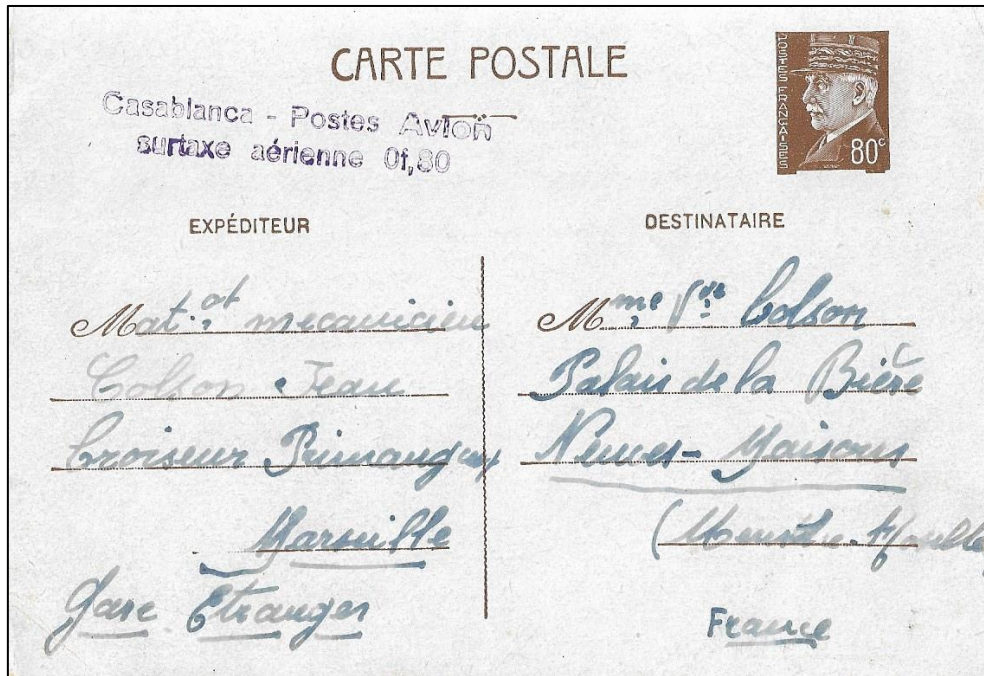 CARTE POSTALE
POSTES FRANÇAISES
80c
Casablanca - Postes Avion
surtaxe aérienne 0f,80
EXPÉDITEUR
Mat. ot mecanicien
Colson Jean
Croiseur Primauguet
Marseille
Gare Etranger
DESTINATAIRE
Mme Vve Colson
Palais de la Bière
Neuves-Maisons
(Meurthe-Moselle)
France